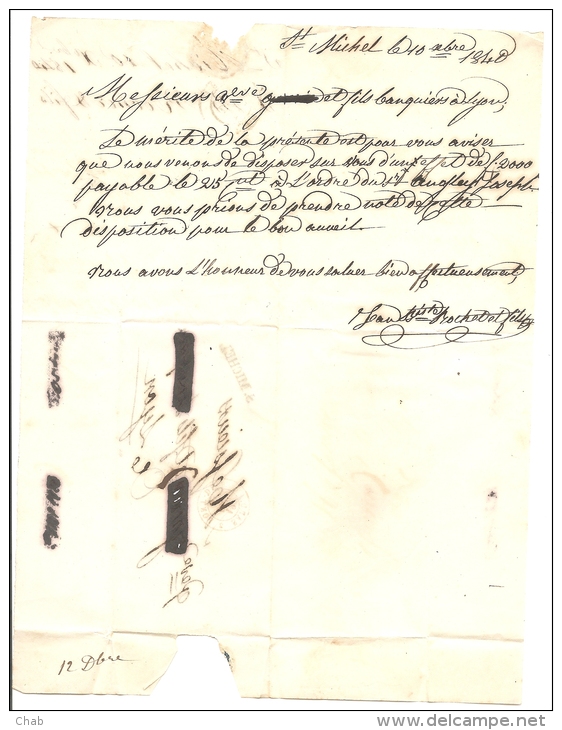 St Michel le 10 xbre 1840
Messieurs veve et fils banquiers à Lyon,
Le mérite de la présente est pour vous aviser
que nous venons de disposer sur vous d'un effet de f. 2000
payable le 25 à L'ordre du Sr Joseph
nous vous prions de prendre note de cette
disposition pour le bon acceuil.
nous avons L'honneur de vous saluer bien affectueusement,
Jean Bte Rochet et fils
St MICHEL
Messieurs
Lyon
12 Dbre
Chab
www.delcampe.net